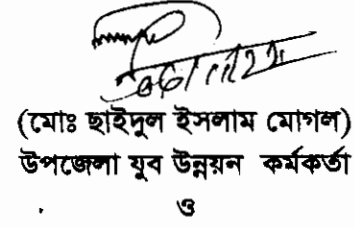 (মোঃ ছাইদুল ইসলাম মোগল)
উপজেলা যুব উন্নয়ন কর্মকর্তা
ও